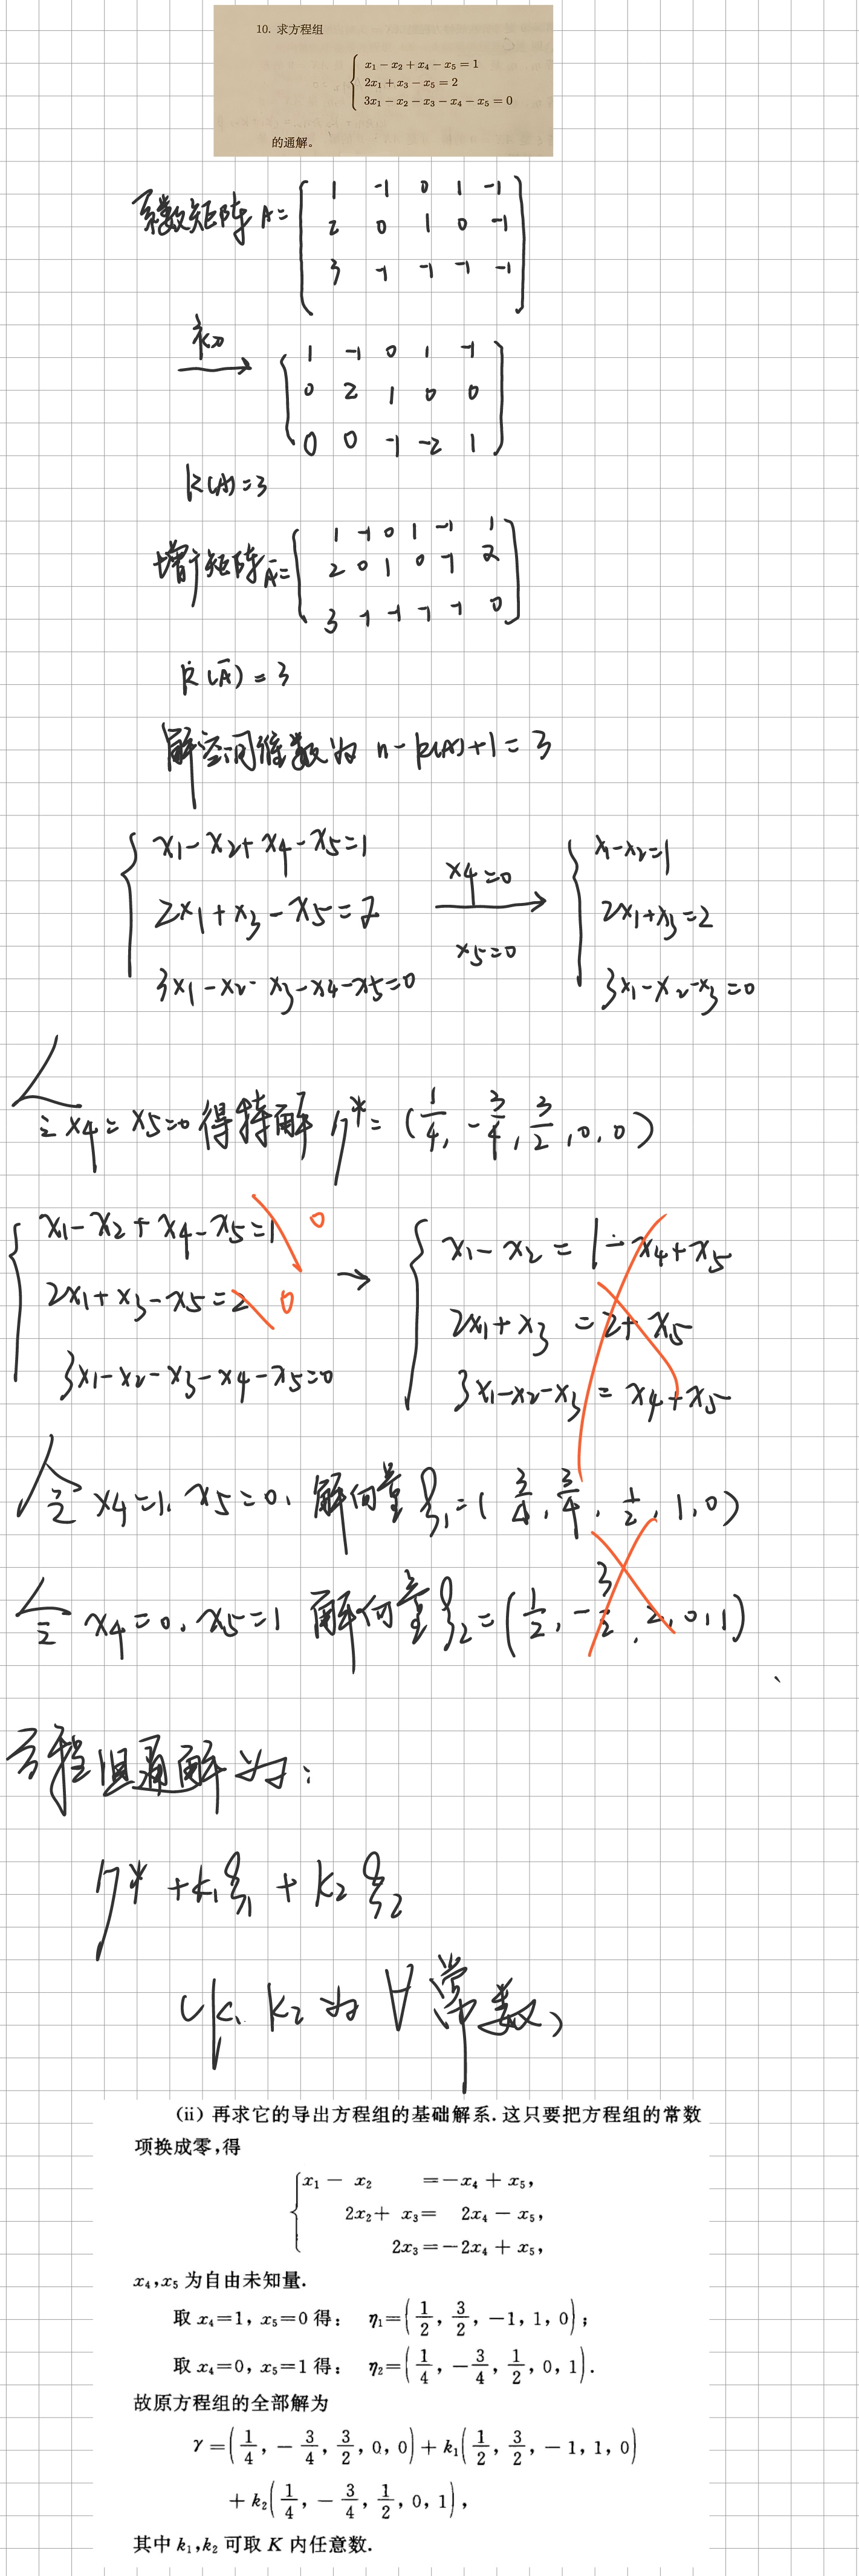 10. 求方程组
x₁ − x₂ + x₄ − x₅ = 1
2x₁ + x₃ − x₅ = 2
3x₁ − x₂ − x₃ − x₄ − x₅ = 0
的通解。
系数矩阵 A =
1 -1 0 1 -1
2 0 1 0 -1
3 -1 -1 -1 -1
1 -1 0 1 -1
0 2 1 0 0
0 0 -1 -2 1
R(A) = 3
增广矩阵 Ā =
1 -1 0 1 -1 1
2 0 1 0 -1 2
3 -1 -1 -1 -1 0
R(Ā) = 3
解空间维数为 n - R(A) + 1 = 3
x₁ - x₂ + x₄ - x₅ = 1
2x₁ + x₃ - x₅ = 2
3x₁ - x₂ - x₃ - x₄ - x₅ = 0
x₄ = 0
x₅ = 0
x₁ - x₂ = 1
2x₁ + x₃ = 2
3x₁ - x₂ - x₃ = 0
令 x₄ = x₅ = 0 得特解 η* = (1/4, -3/4, 3/2, 0, 0)
x₁ - x₂ + x₄ - x₅ = 1 0
2x₁ + x₃ - x₅ = 2 0
3x₁ - x₂ - x₃ - x₄ - x₅ = 0
→
x₁ - x₂ = 1 - x₄ + x₅
2x₁ + x₃ = 2 + x₅
3x₁ - x₂ - x₃ = x₄ + x₅
令 x₄ = 1, x₅ = 0, 解向量 ξ₁ = (3/4, 3/4, 1/2, 1, 0)
令 x₄ = 0, x₅ = 1 解向量 ξ₂ = (1/2, -3/2, 2, 0, 1)
方程组通解为:
η* + k₁ξ₁ + k₂ξ₂
(k₁ k₂ 为 ∀ 常数)
(ii) 再求它的导出方程组的基础解系. 这只要把方程组的常数
项换成零,得
x₁ − x₂ = −x₄ + x₅,
2x₂ + x₃ = 2x₄ − x₅,
2x₃ = −2x₄ + x₅,
x₄,x₅ 为自由未知量.
取 x₄=1, x₅=0 得: η₁=(1/2, 3/2, −1, 1, 0);
取 x₄=0, x₅=1 得: η₂=(1/4, −3/4, 1/2, 0, 1).
故原方程组的全部解为
γ=(1/4, −3/4, 3/2, 0, 0) + k₁(1/2, 3/2, −1, 1, 0)
+ k₂(1/4, −3/4, 1/2, 0, 1),
其中 k₁,k₂ 可取 K 内任意数.